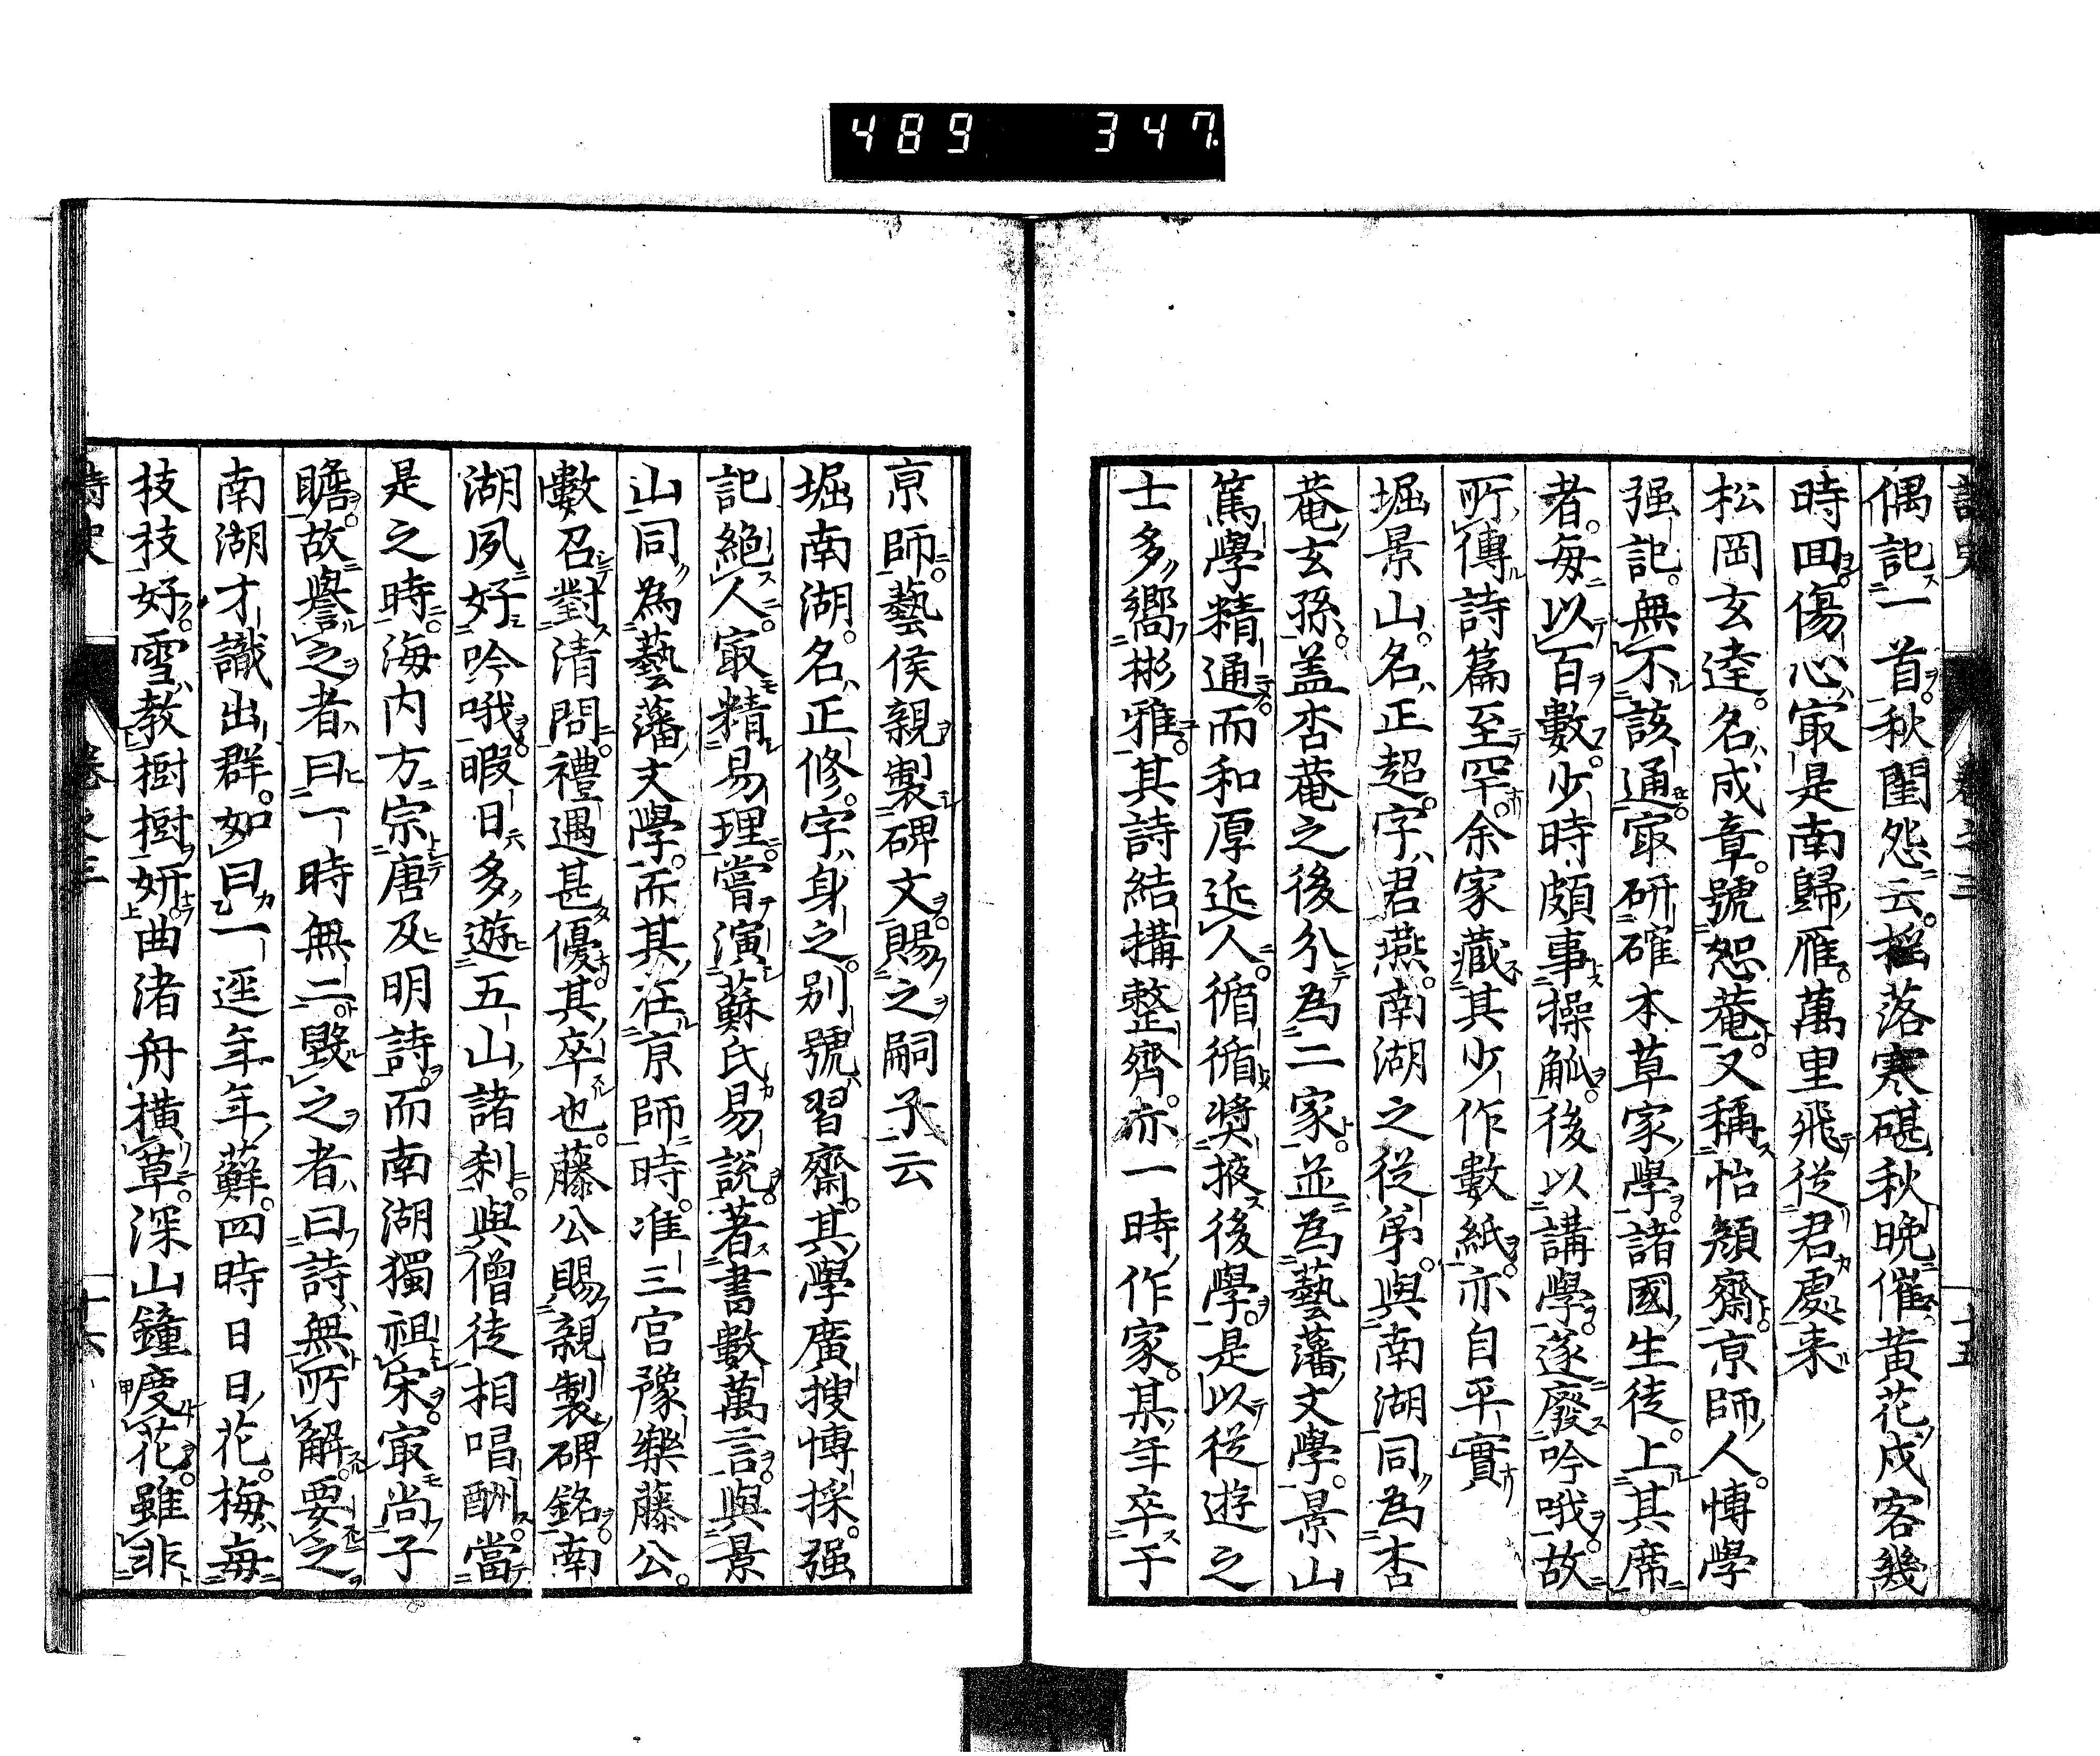 489 347.
偶記一首。秋閨怨云。搖落寒碪秋晚催黄花戍客幾
時回傷心冣是南歸雁。萬里飛從君處来
松岡玄達。名成章。號恕菴。又稱怡顏齋。亰師人。博學
强記。無不該通。冣研確本草家學。諸國生徒。上其席
者。毎以百數。少時頗事操觚。後以講學。遂廢吟哦。故
所傳詩篇至罕。余家藏其少作數紙。亦自平實
堀景山。名正超。字君燕。南湖之從弟。與南湖同為杏
菴玄孫。盖杏菴之後分為二家。並為藝藩文學。景山
篤學精通。而和厚近人。循循奬掖後學。是以從遊之
士多嚮彬雅。其詩結搆整齊。亦一時作家。某年卒于
亰師。藝侯親製碑文。賜之嗣子云
堀南湖。名正修。字身之。别號習齋。其學廣搜博採。强
記絶人。冣精易理。嘗演蘇氏易說。著書數萬言。與景
山同為藝藩文學。而其在亰師時。准三宮豫樂藤公。
數召對清問。禮遇甚優。其卒也。藤公賜親製碑銘。南
湖夙好吟哦。暇日多遊五山諸刹。與僧徒相唱酬。當
是之時。海内方宗唐及明詩。而南湖獨祖宋。冣尚子
瞻。故譽之者曰。一時無二。毀之者曰。詩無所解。要之
南湖才識出群。如曰一逕年年蘚。四時日日花。梅毎
技技好。雪教樹樹妍。曲渚舟橫草。深山鐘度花。雖非